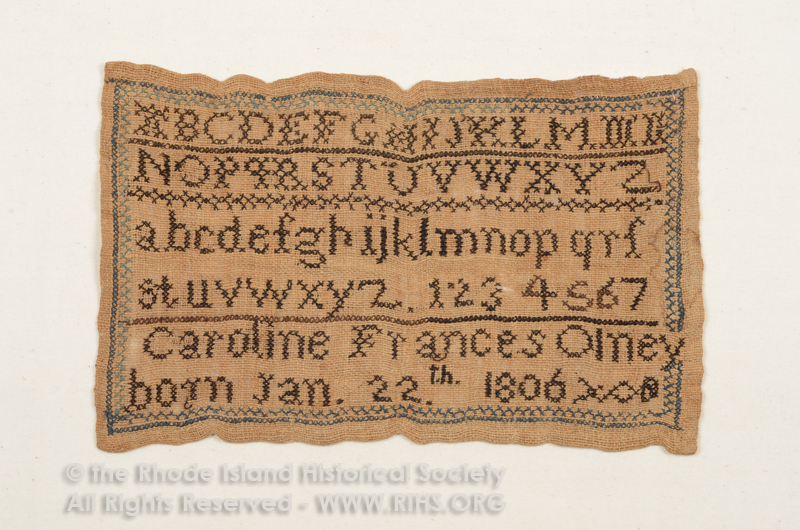 ABCDEFGHIJKLM
NOPQRSTUVWXYZ
abcdefghijklmnopqrſ
stuvwxyz. 1234567
Caroline Frances Olney
born Jan. 22.th. 1806
© the Rhode Island Historical Society
All Rights Reserved - WWW.RIHS.ORG